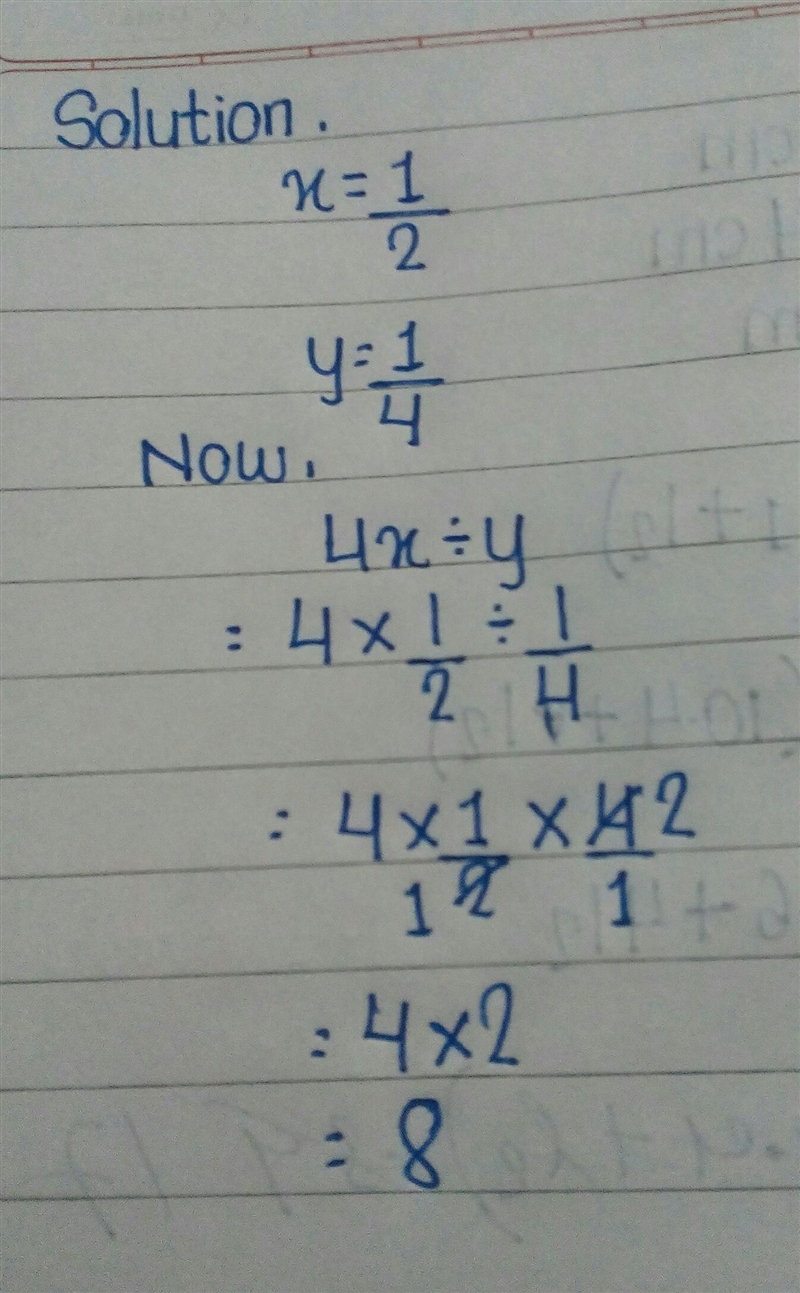 Solution.
x = 1/2
y = 1/4
Now.
4x ÷ y
= 4 × 1/2 ÷ 1/4
= 4 × 1/2 1 × 4/1 2
= 4 × 2
= 8